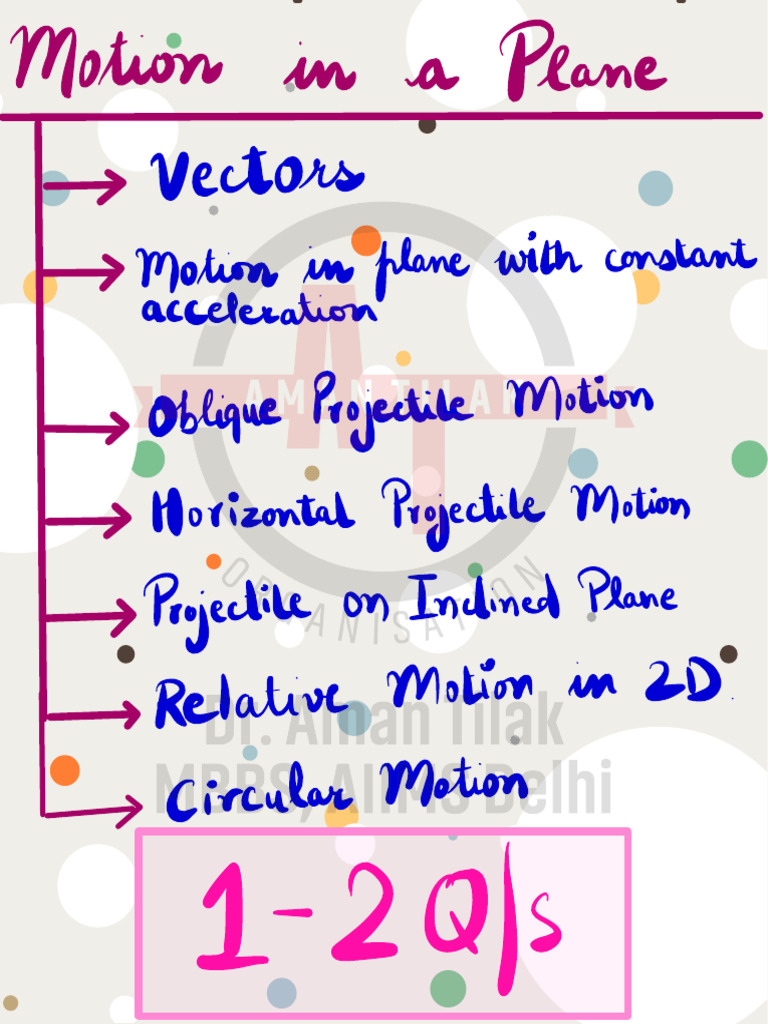 Motion in a Plane
Vectors
Motion in plane with constant
acceleration
Oblique Projectile Motion
AMAN TILAK
Horizontal Projectile Motion
ORGANISATION
Projectile on Inclined Plane
Relative Motion in 2D
Dr. Aman Tilak
Circular Motion
MBBS, AIIMS Delhi
1-2 Q/s